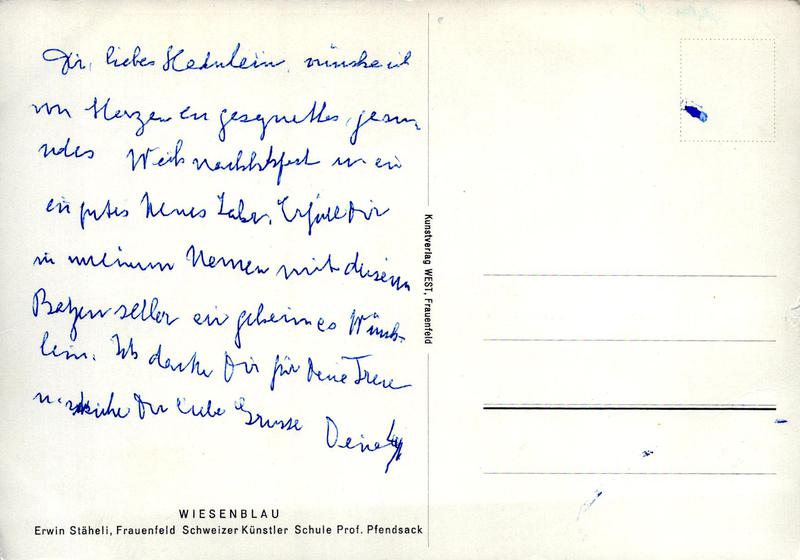 Dir, liebes Hedulein, wünsche ich
von Herzen en gesegnettes, gesun
ndes Weihnachtsfest u ein
ein gutes Neues Jahr. Erfülle Dir
in meinem Nemen mit diesem
Batzen selber ein geheimes Wünsch-
lein. Ich danke Dir für Deine Treue
u. schicke Dir liebe Grüsse Deine
Kunstverlag WEST, Frauenfeld
WIESENBLAU
Erwin Stäheli, Frauenfeld Schweizer Künstler Schule Prof. Pfendsack